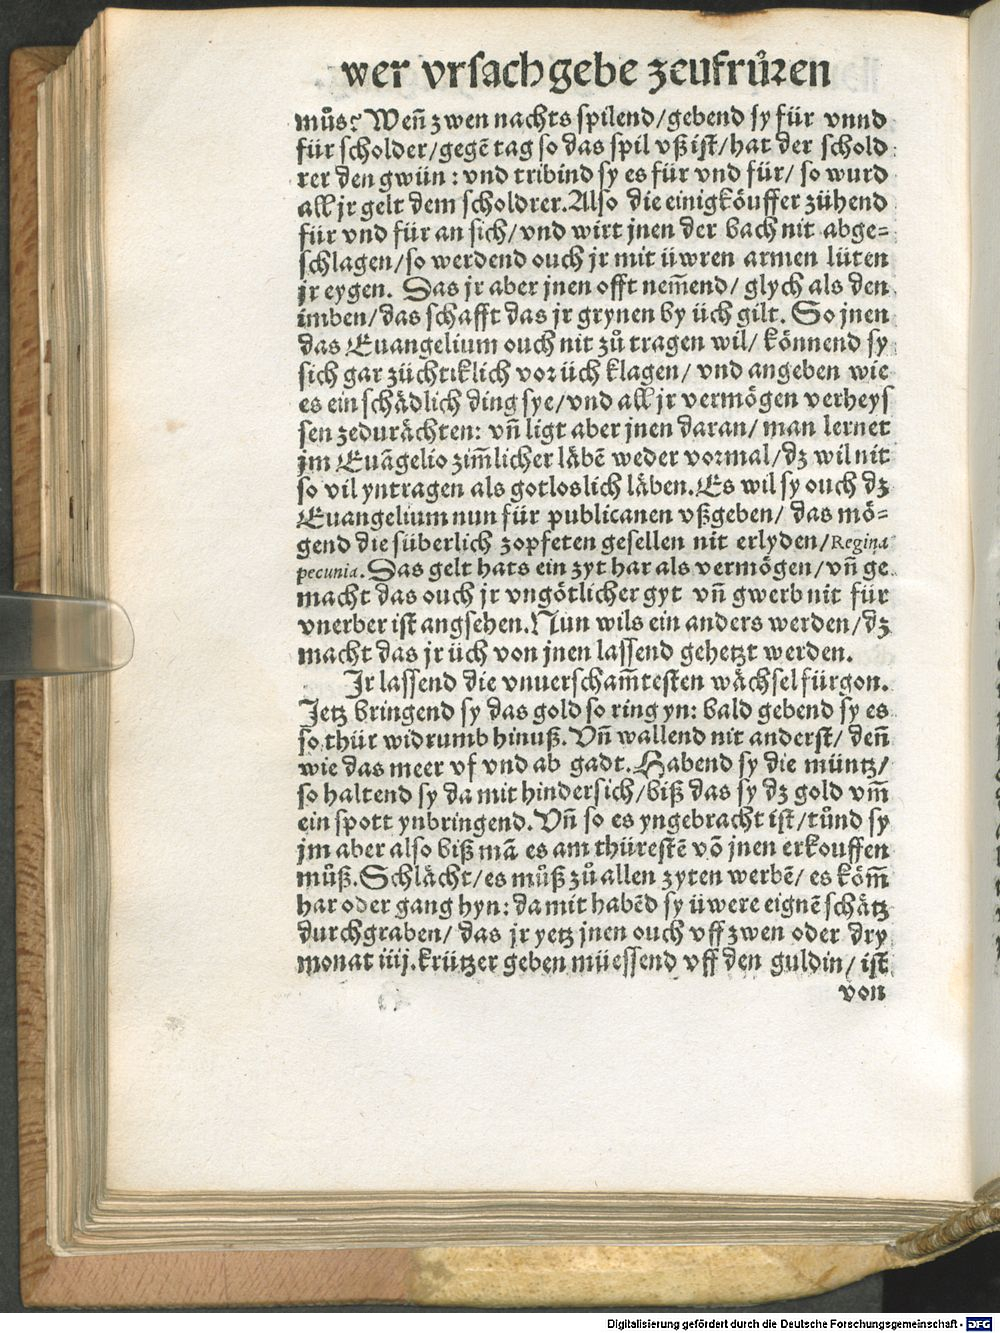 wer vrsach gebe zeufrůren
můs? Weñ zwen nachts spilend/gebend sy für vnnd
für scholder/gegē tag so das spil vß ist/hat der schold
rer den gwün: vnd tribind sy es für vnd für/ so wurd
all jr gelt dem scholdrer. Also die einigköuffer zühend
für vnd für an sich/ vnd wirt jnen der bach nit abge=
schlagen/so werdend ouch jr mit üwren armen lüten
jr eygen. Das jr aber jnen offt nem̄end/ glych als den
imben/das schafft das jr grynen by üch gilt. So jnen
das Euangelium ouch nit zů tragen wil/ könnend sy
sich gar züchtiklich vor üch klagen/ vnd angeben wie
es ein schädlich ding sye/vnd all jr vermögen verheys
sen zedurächten: vñ ligt aber jnen daran/ man lernet
jm Euāgelio zim̄licher läbē weder vormal/ dz wil nit
so vil yntragen als gotloslich läben. Es wil sy ouch dz
Euangelium nun für publicanen vßgeben/ das mö=
gend die süberlich zopfeten gesellen nit erlyden/Regina
pecunia. Das gelt hats ein zyt har als vermögen/vñ ge
macht das ouch jr vngötlicher gyt vñ gwerb nit für
vnerber ist angsehen. Nun wils ein anders werden/dz
macht das jr üch von jnen lassend gehetzt werden.
Jr lassend die vnuerscham̄testen wächsel fürgon.
Jetz bringend sy das gold so ring yn: bald gebend sy es
so thür widrumb hinuß. Vñ wallend nit anderst/ deñ
wie das meer vf vnd ab gadt. Habend sy die müntz/
so haltend sy da mit hindersich/biß das sy dz gold vm̄
ein spott ynbringend. Vñ so es yngebracht ist/tůnd sy
jm aber also biß mā es am thürestē vō jnen erkouffen
můß. Schlächt/es můß zů allen zyten werbē/ es köm̄
har oder gang hyn: da mit habēd sy üwere eignē schätz
durchgraben/ das jr yetz jnen ouch vff zwen oder dry
monat iiij. krützer geben müessend vff den guldin/ ist
von
Digitalisierung gefördert durch die Deutsche Forschungsgemeinschaft - DFG